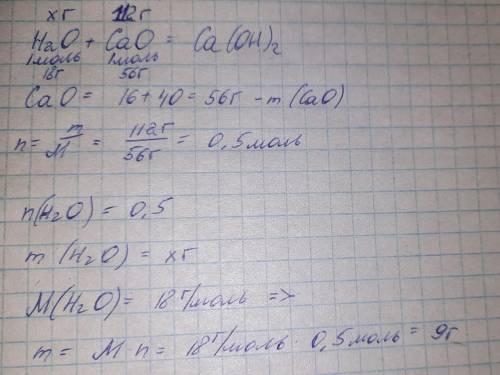 хг 112г
H₂O + CaO = Ca(OH)₂
1моль 1моль
18г 56г
CaO = 16 + 40 = 56г - m (CaO)
n = m/M = 112г/56г = 0,5 моль
n(H₂O) = 0,5
m (H₂O) = хг
M(H₂O) = 18 г/моль =>
m = M · n = 18 г/моль · 0,5 моль = 9г